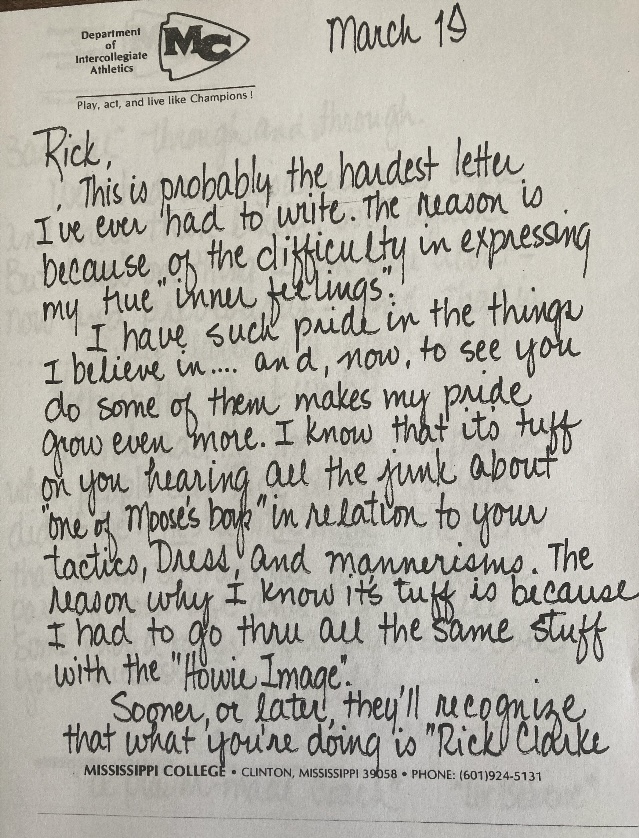 Department
of
Intercollegiate
Athletics
MC
Play, act, and live like Champions!
March 19
Rick,
This is probably the hardest letter
I've ever had to write. The reason is
because of the difficulty in expressing
my true "inner feelings".
I have such pride in the things
I believe in.... and, now, to see you
do some of them makes my pride
grow even more. I know that it's tuff
on you hearing all the junk about
"one of Moose's boys" in relation to your
tactics, Dress, and mannerisms. The
reason why I know it's tuff is because
I had to go thru all the same stuff
with the "Howie Image".
Sooner, or later, they'll recognize
that what you're doing is "Rick Clarke
MISSISSIPPI COLLEGE • CLINTON, MISSISSIPPI 39058 • PHONE: (601)924-5131